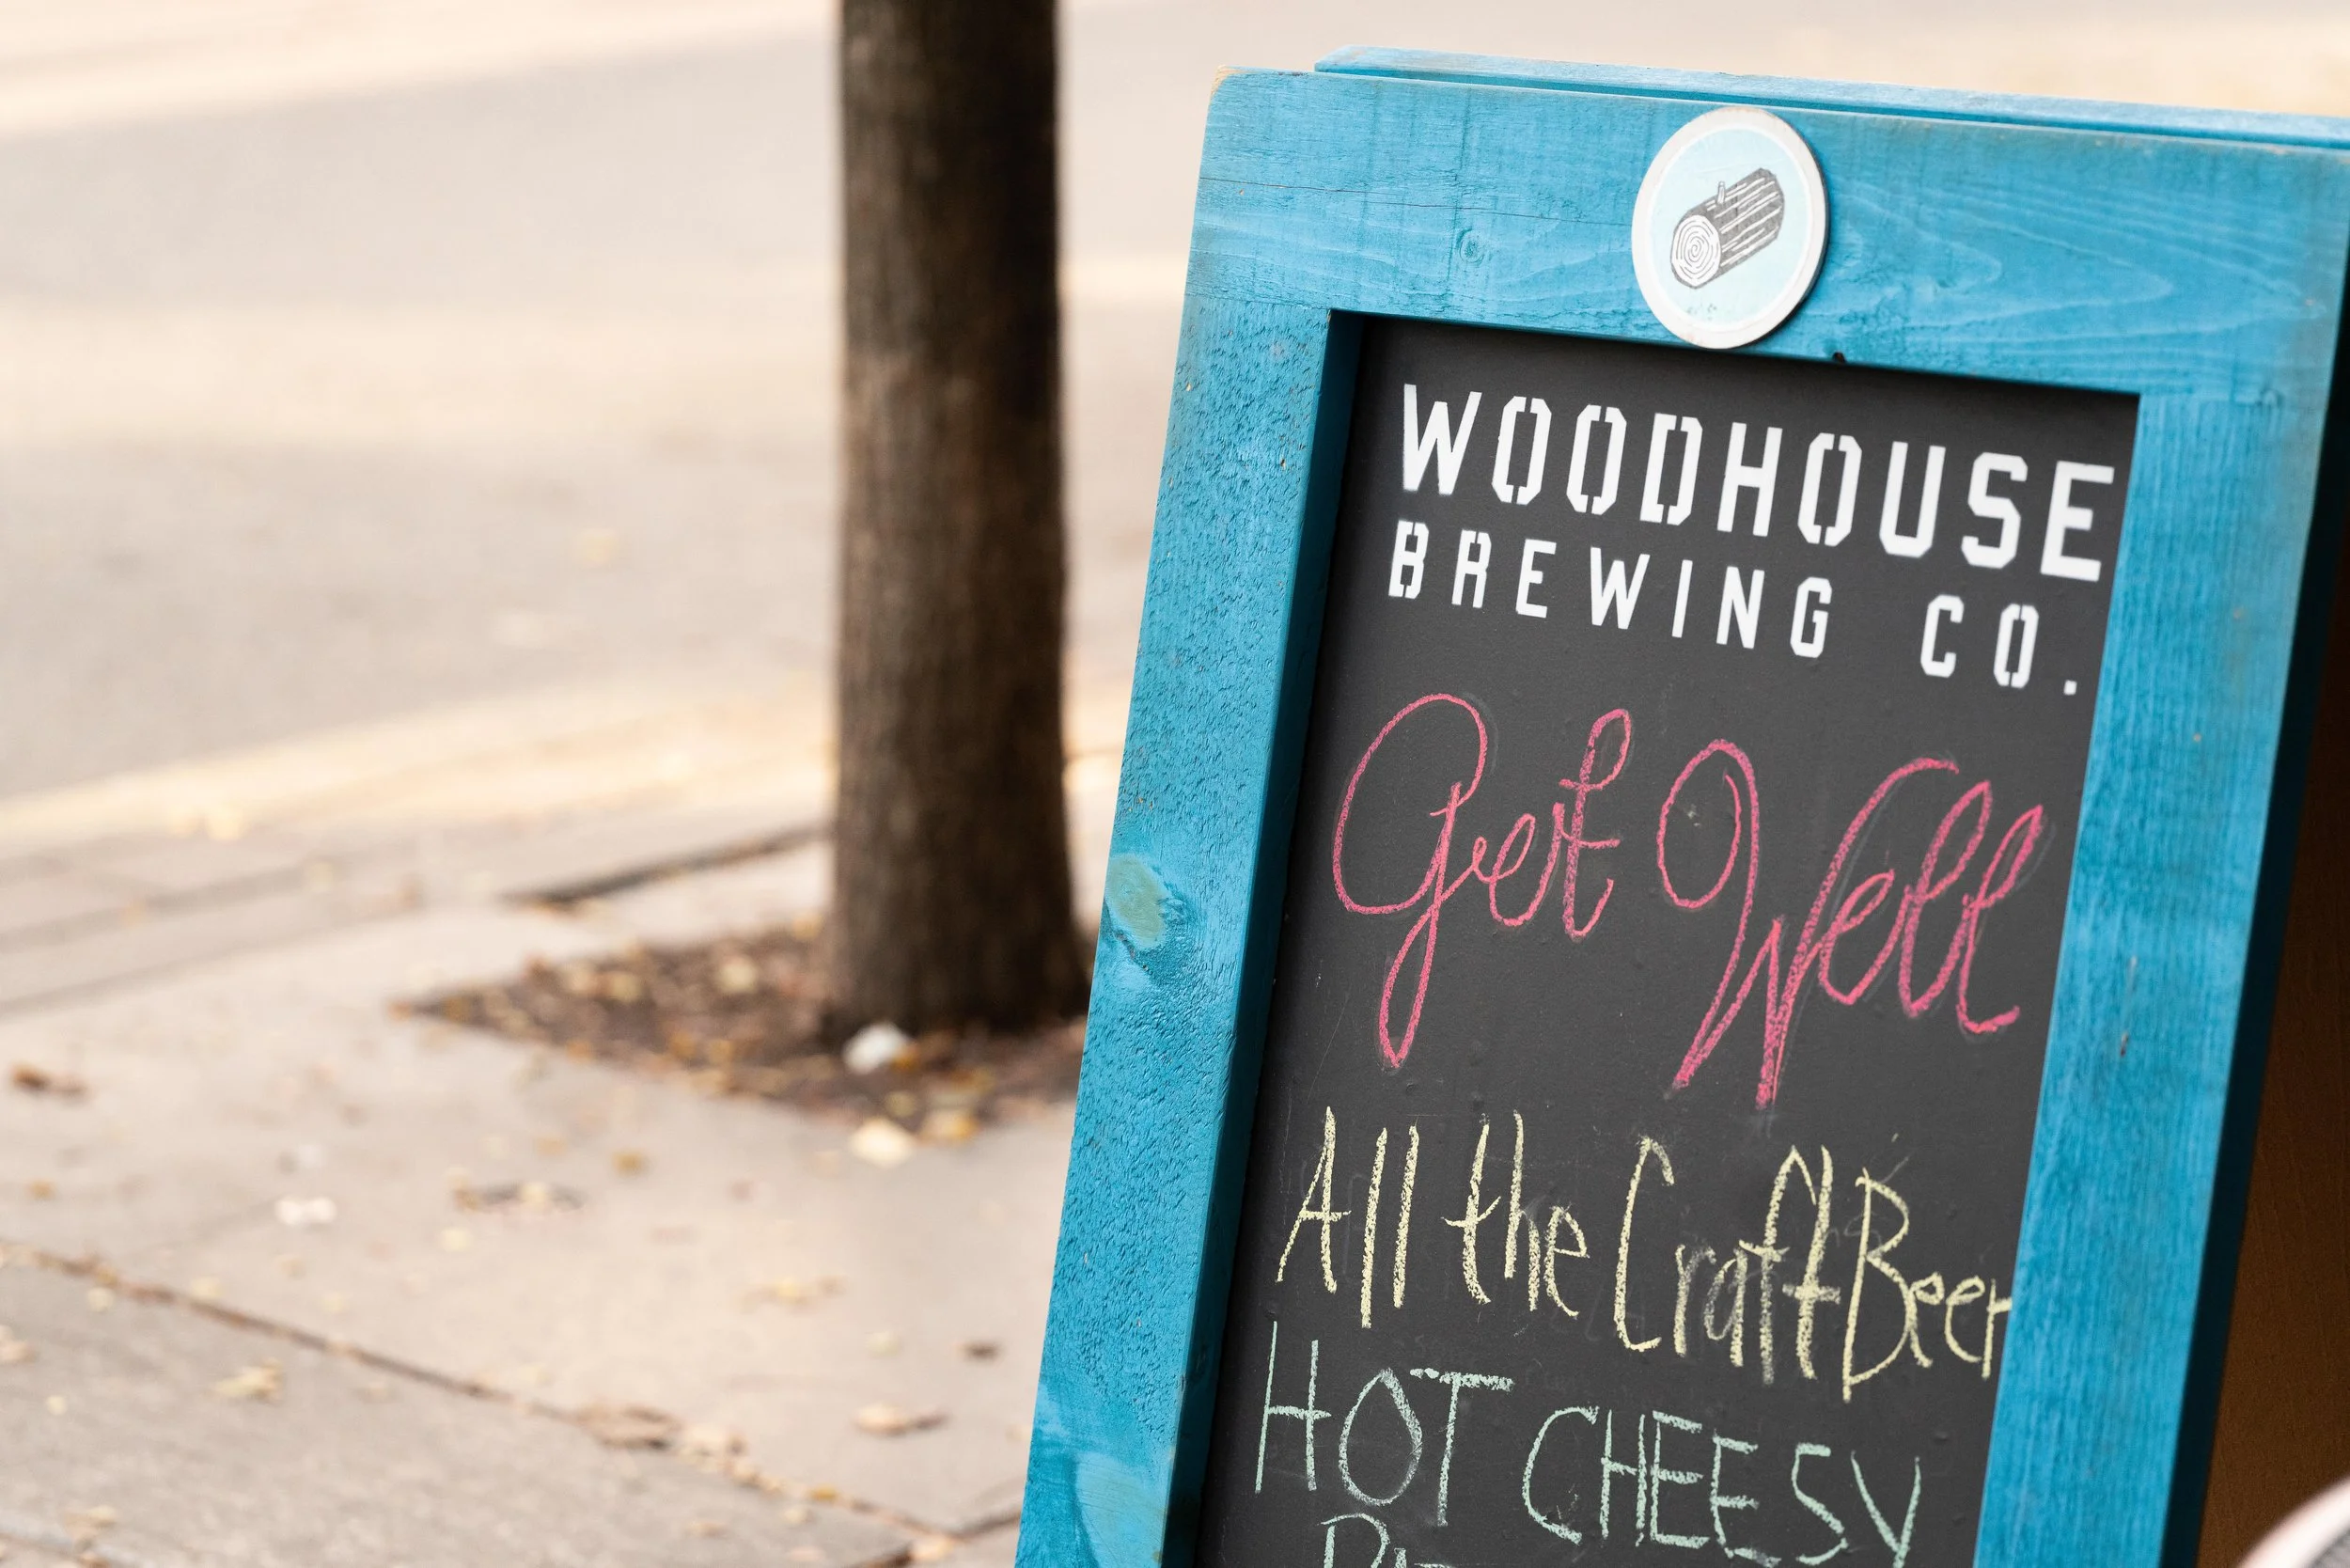 WOODHOUSE
BREWING CO.
Get Well
All the Craft Beer
HOT CHEESY